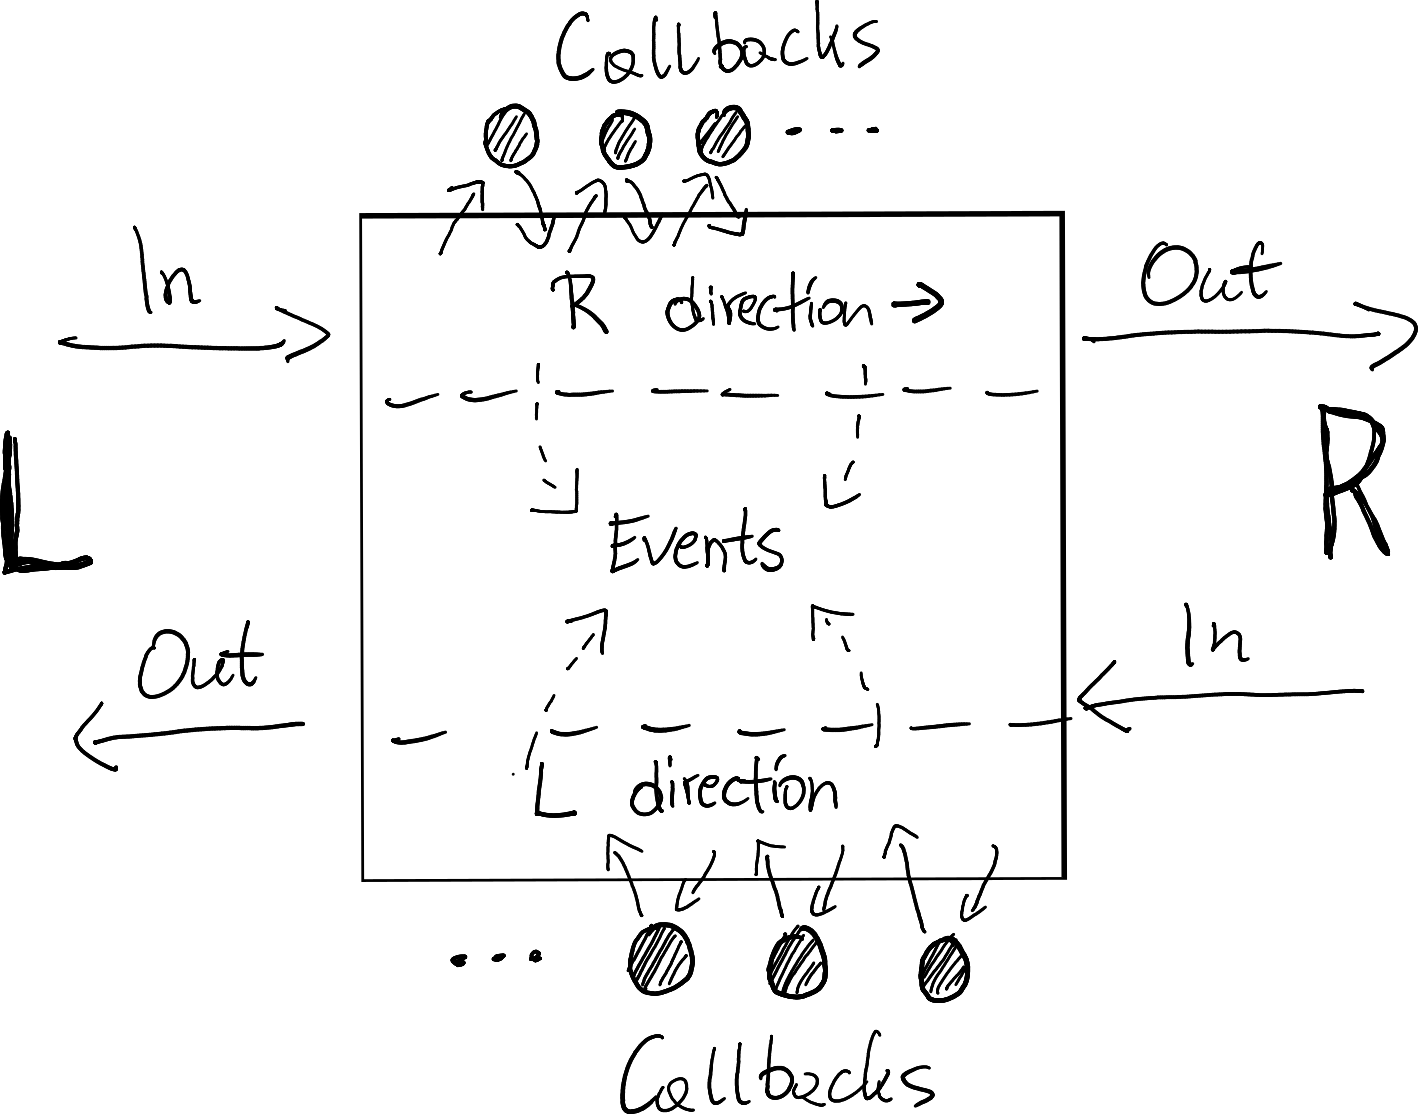 Callbacks
In
R direction →
Out
L
R
Events
Out
In
L direction
Callbacks